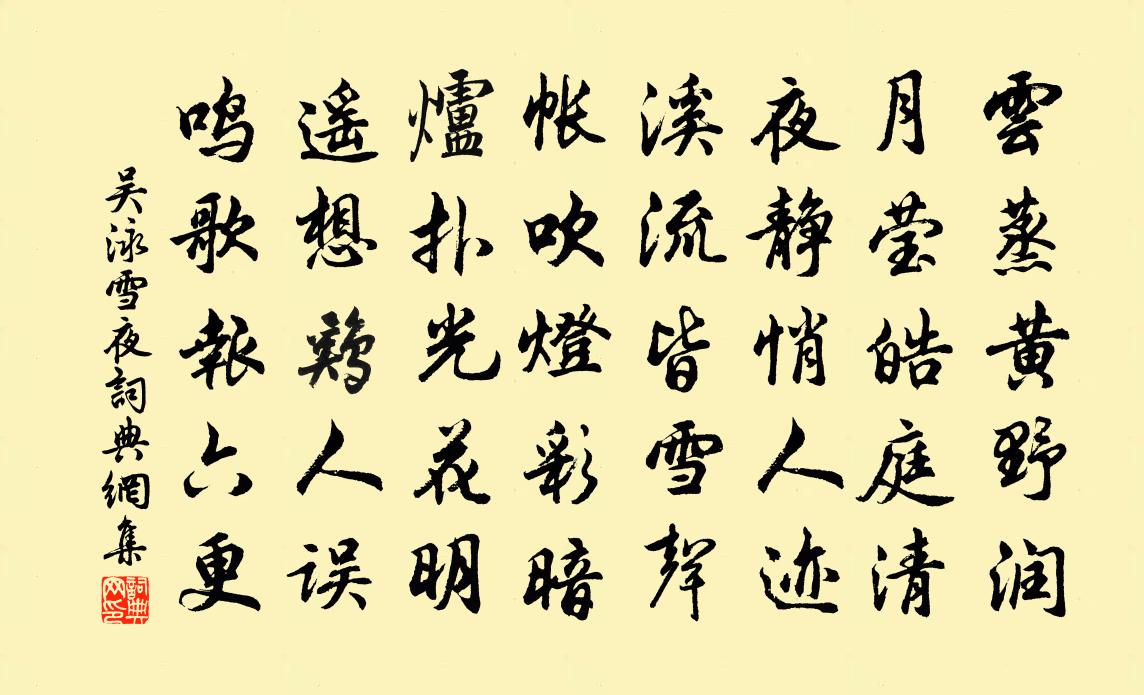 雲蒸黄野润
月莹皓庭清
夜静悄人迹
溪流皆雪聲
帐吹燈彩暗
爐扑光花明
遥想鷄人误
鸣歌報六更
吴泳雪夜詞典網集
詞典网印